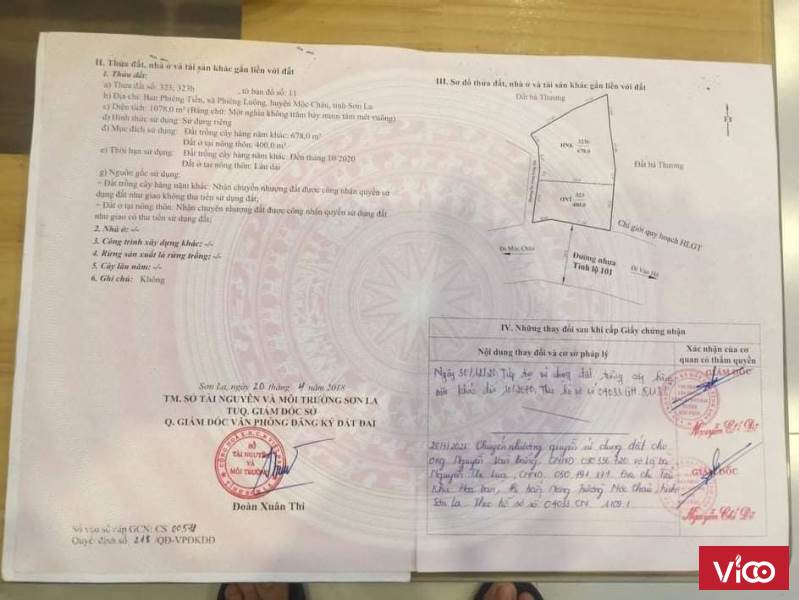 II. Thửa đất, nhà ở và tài sản khác gắn liền với đất
1. Thửa đất:
a) Thửa đất số: 323, 323b , tờ bản đồ số: 11
b) Địa chỉ: Bản Phiêng Tiến, xã Phiêng Luông, huyện Mộc Châu, tỉnh Sơn La
c) Diện tích: 1078,0 m² (Bằng chữ: Một nghìn không trăm bảy mươi tám mét vuông)
d) Hình thức sử dụng: Sử dụng riêng
đ) Mục đích sử dụng: Đất trồng cây hàng năm khác: 678,0 m²
Đất ở tại nông thôn: 400,0 m²
e) Thời hạn sử dụng: Đất trồng cây hàng năm khác: Đến tháng 10/2020
Đất ở tại nông thôn: Lâu dài
g) Nguồn gốc sử dụng:
+ Đất trồng cây hàng năm khác: Nhận chuyển nhượng đất được công nhận quyền sử
dụng đất như giao không thu tiền sử dụng đất;
+ Đất ở tại nông thôn: Nhận chuyển nhượng đất được công nhận quyền sử dụng đất
như giao có thu tiền sử dụng đất;
2. Nhà ở: -/-
3. Công trình xây dựng khác: -/-
4. Rừng sản xuất là rừng trồng: -/-
5. Cây lâu năm: -/-
6. Ghi chú: Không
Sơn La, ngày 20 tháng 4 năm 2018
TM. SỞ TÀI NGUYÊN VÀ MÔI TRƯỜNG SƠN LA
TUQ. GIÁM ĐỐC SỞ
Q. GIÁM ĐỐC VĂN PHÒNG ĐĂNG KÝ ĐẤT ĐAI
SỞ
TÀI NGUYÊN
VÀ
MÔI TRƯỜNG
Đoàn Xuân Thi
Số vào sổ cấp GCN: CS
Quyết định số 218 /QĐ-VPĐKĐĐ
III. Sơ đồ thửa đất, nhà ở và tài sản khác gắn liền với đất
Đất hà Thương
HNK 323b 678,0
Đất hà Thương
ONT 323 400,0
Chỉ giới quy hoạch HLGT
Đi Mộc Châu
Đường nhựa
Tỉnh lộ 101
Đi Vân Hồ
IV. Những thay đổi sau khi cấp Giấy chứng nhận
Nội dung thay đổi và cơ sở pháp lý
Xác nhận của cơ
quan có thẩm quyền
Tiếp tục sử dụng đất trồng cây hàng
năm khác đến 10/2070, Theo hồ sơ số
GIÁM ĐỐC
Nguyễn Chí Dỡ
Chuyển nhượng quyền sử dụng đất cho
ông Nguyễn Văn CMND và bà
Nguyễn Thị CMND Địa chỉ
Mộc Châu, tỉnh
Sơn La. Theo hồ sơ số
GIÁM ĐỐC
Nguyễn Chí Dỡ
ViCO